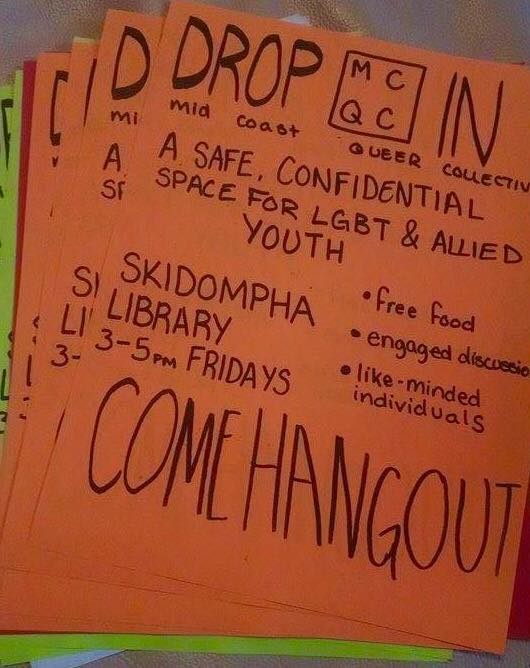 DROP MC QC IN
mid coast QUEER COLLECTIV
A SAFE, CONFIDENTIAL
SPACE FOR LGBT & ALLIED
YOUTH
SKIDOMPHA
LIBRARY
3-5PM FRIDAYS
• free food
• engaged discussio
• like-minded
individuals
COME HANGOUT
D
mi
A
SF
SI
LI
3-